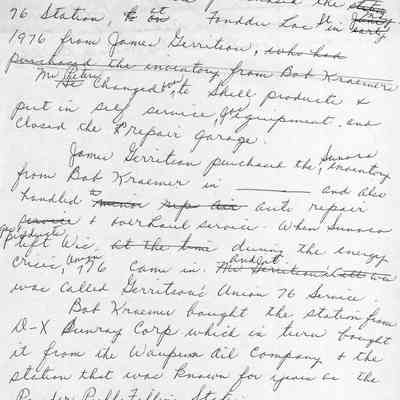 76 Station, ~~to~~ ~~on~~ at Fonddu Lac St. in ~~early~~
1976 from James Gerritson, ~~who had~~
~~purchased the inventory from Bob Kraemer~~
Mr. ~~He~~ Changed over to Shell products &
put in self service, gas equipment, and
closed the repair garage.
James Gerritson purchased the Sunoco inventory
from Bob Kraemer in ________ and also
handled ~~minor~~ ~~repair~~ auto repair
~~service~~ & overhaul service. When Sunoco
gas products left Wis. ~~at the time~~ during the energy
crisis, Union 76 came in. and it
was called Gerritson's Union 76 Service.
Bob Kraemer bought the station from
D-X Sunray Corp which in turn bought
it from the Waupun Oil Company & the
station that was known for years as the